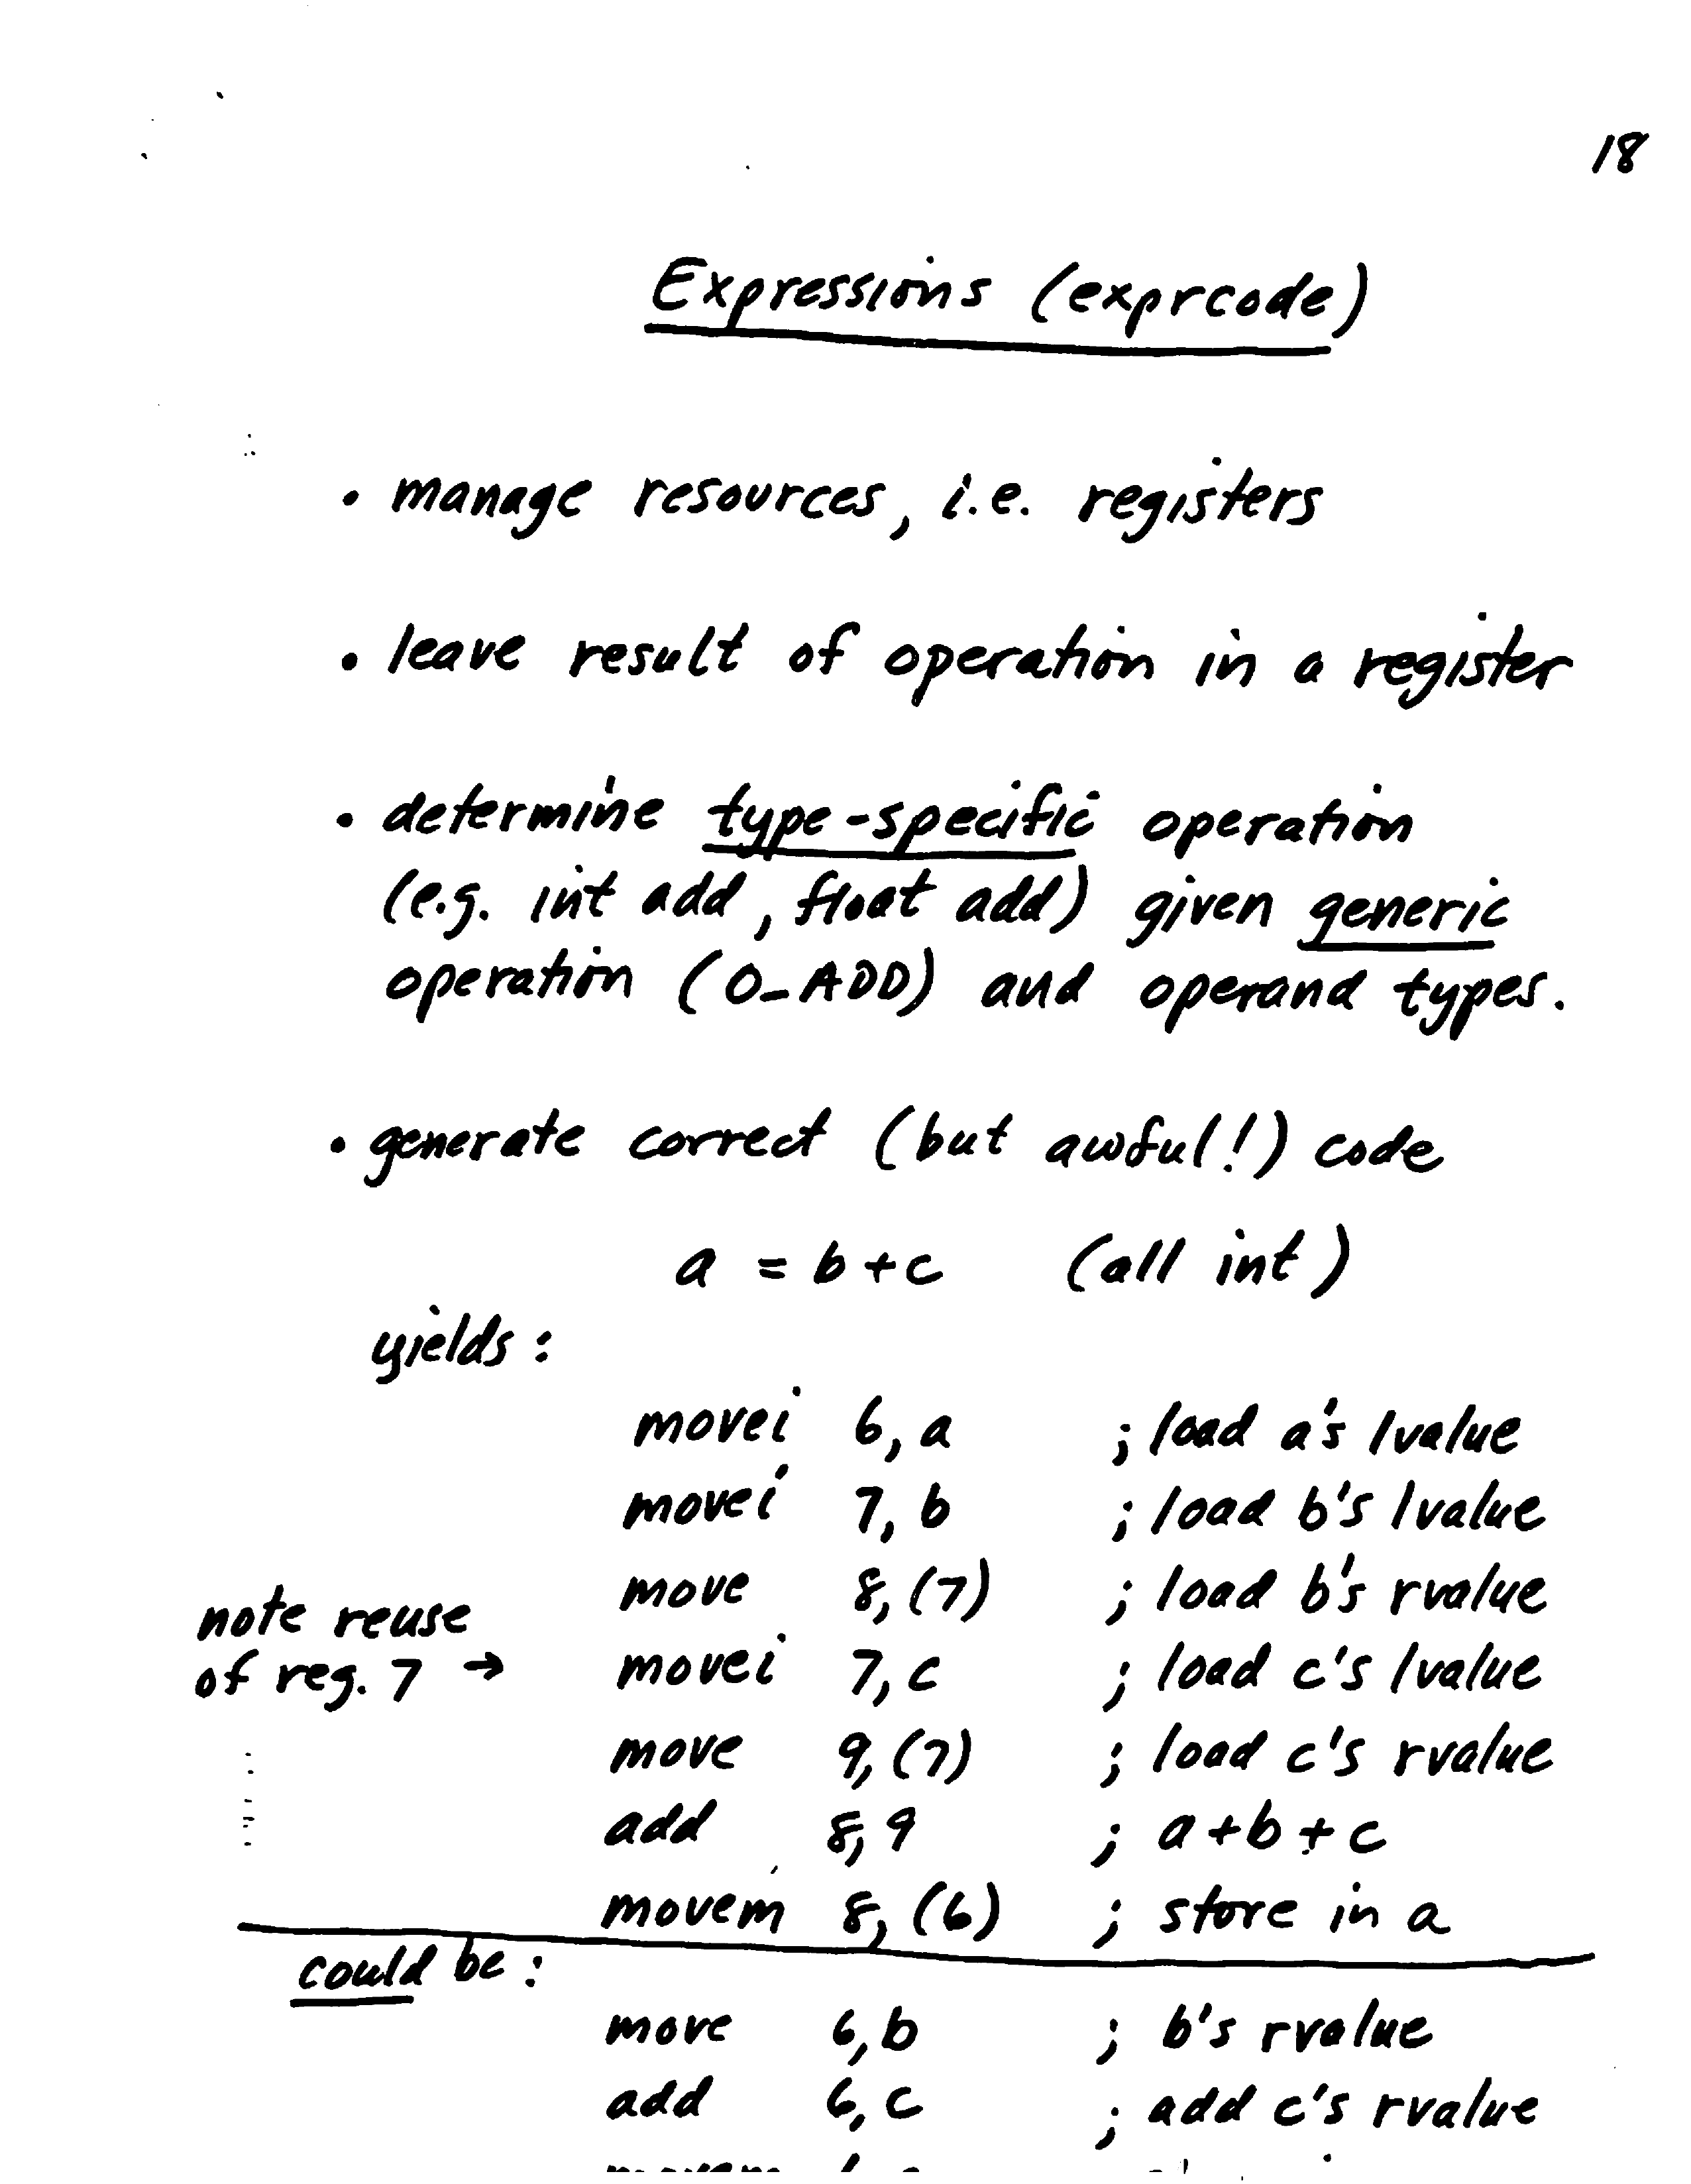 18
Expressions (exprcode)
• manage resources, i.e. registers
• leave result of operation in a register
• determine type-specific operation
(e.g. int add, float add) given generic
operation (O_ADD) and operand types.
• generate correct (but awful!) code
a = b+c (all int)
yields:
movei 6, a ; load a's lvalue
movei 7, b ; load b's lvalue
move 8, (7) ; load b's rvalue
note reuse
of reg. 7 → movei 7, c ; load c's lvalue
move 9, (7) ; load c's rvalue
add 8, 9 ; a+b+c
movem 8, (6) ; store in a
could be:
move 6, b ; b's rvalue
add 6, c ; add c's rvalue